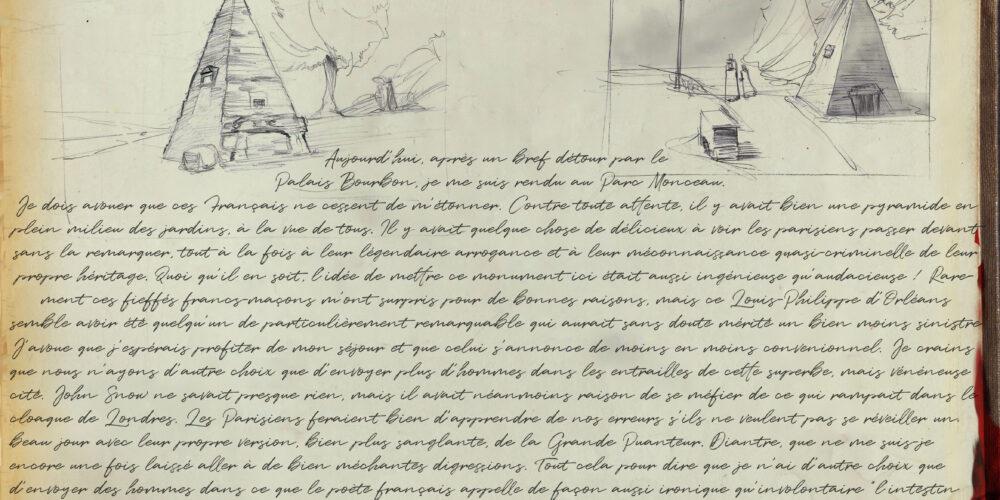 Aujourd'hui, après un bref détour par le
Palais Bourbon, je me suis rendu au Parc Monceau.
Je dois avouer que ces Français ne cessent de m'étonner. Contre toute attente, il y avait bien une pyramide en
plein milieu des jardins, à la vue de tous. Il y avait quelque chose de délicieux à voir les parisiens passer devant
sans la remarquer, tout à la fois à leur légendaire arrogance et à leur méconnaissance quasi-criminelle de leur
propre héritage. Quoi qu'il en soit, l'idée de mettre ce monument ici était aussi ingénieuse qu'audacieuse ! Rare-
ment ces fieffés francs-maçons m'ont surpris pour de bonnes raisons, mais ce Louis-Philippe d'Orléans
semble avoir été quelqu'un de particulièrement remarquable qui aurait sans doute mérité un bien moins sinistre
J'avoue que j'espérais profiter de mon séjour et que celui s'annonce de moins en moins convenionnel. Je crains
que nous n'ayons d'autre choix que d'envoyer plus d'hommes dans les entrailles de cette superbe, mais vénéneuse
cité. John Snow ne savait presque rien, mais il avait néanmoins raison de se méfier de ce qui rampait dans le
cloaque de Londres. Les Parisiens feraient bien d'apprendre de nos erreurs s'ils ne veulent pas se réveiller un
beau jour avec leur propre version, bien plus sanglante, de la Grande Puanteur. Diantre, que ne me suis-je
encore une fois laissé aller à de bien méchantes digressions. Tout cela pour dire que je n'ai d'autre choix que
d'envoyer des hommes dans ce que le poète français appelle de façon aussi ironique qu'involontaire "l'intestin